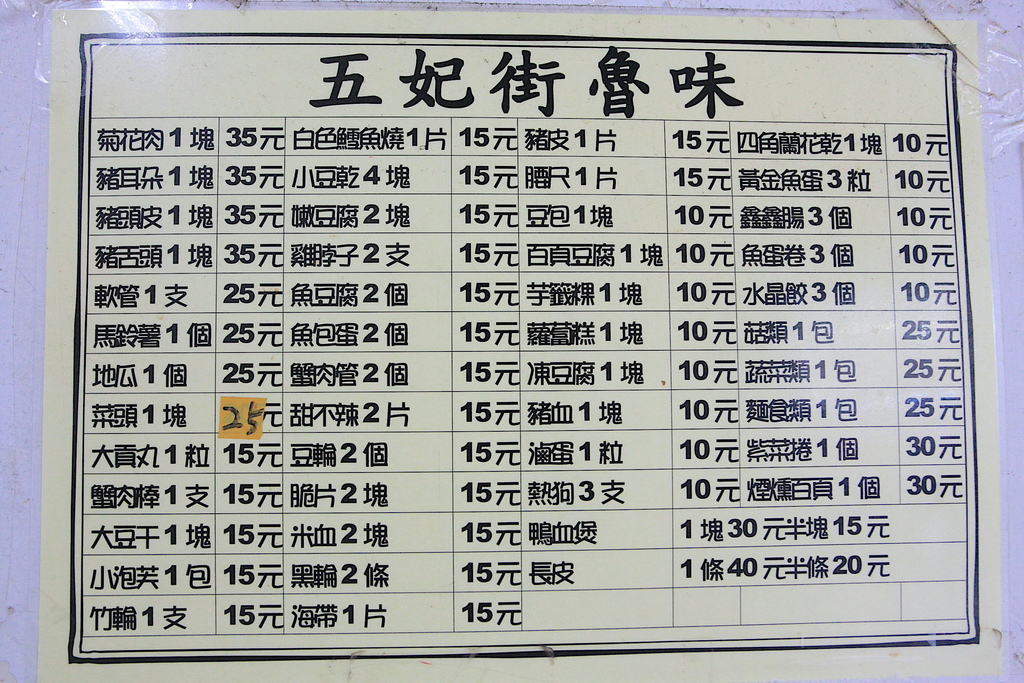 五妃街魯味
菊花肉1塊 35元 白色鱈魚燒1片 15元 豬皮1片 15元 四角蘭花乾1塊 10元
豬耳朵1塊 35元 小豆乾4塊 15元 腰尺1片 15元 黃金魚蛋3粒 10元
豬頭皮1塊 35元 嫩豆腐2塊 15元 豆包1塊 10元 鑫鑫腸3個 10元
豬舌頭1塊 35元 雞脖子2支 15元 百頁豆腐1塊 10元 魚蛋卷3個 10元
軟管1支 25元 魚豆腐2個 15元 芋籤粿1塊 10元 水晶餃3個 10元
馬鈴薯1個 25元 魚包蛋2個 15元 蘿蔔糕1塊 10元 菇類1包 25元
地瓜1個 25元 蟹肉管2個 15元 凍豆腐1塊 10元 蔬菜類1包 25元
菜頭1塊 25元 甜不辣2片 15元 豬血1塊 10元 麵食類1包 25元
大貢丸1粒 15元 豆輪2個 15元 滷蛋1粒 10元 紫菜捲1個 30元
蟹肉棒1支 15元 脆片2塊 15元 熱狗3支 10元 煙燻百頁1個 30元
大豆干1塊 15元 米血2塊 15元 鴨血煲 1塊30元半塊15元
小泡芙1包 15元 黑輪2條 15元 長皮 1條40元半條20元
竹輪1支 15元 海帶1片 15元